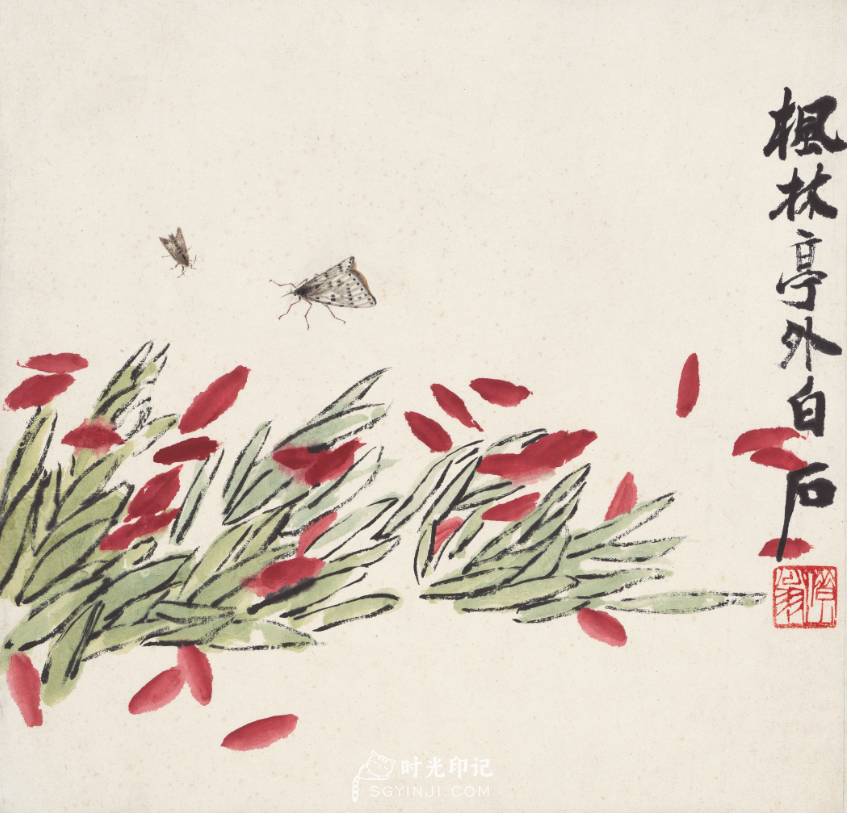 楓林亭外白石
時光印记
SGYINJI.COM